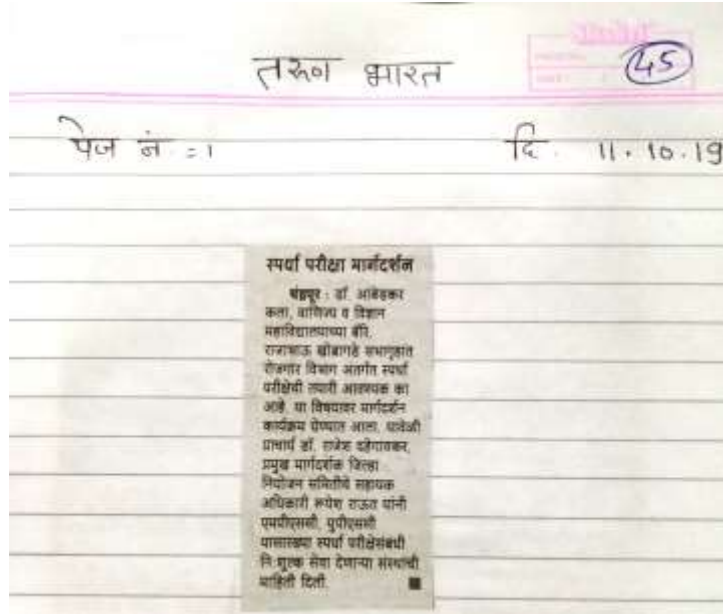 तरुण भारत
45
पेज नं. = 1
दि. 11.10.19
स्पर्धा परीक्षा मार्गदर्शन
चंद्रपूर : डॉ. आंबेडकर
कला, वाणिज्य व विज्ञान
महाविद्यालयाच्या बॅरि.
राजाभाऊ खोब्रागडे सभागृहात
रोजगार विभाग अंतर्गत स्पर्धा
परीक्षेची तयारी आवश्यक का
आहे. या विषयावर मार्गदर्शन
कार्यक्रम घेण्यात आला. यावेळी
प्राचार्य डॉ. राजेश दहेगावकर,
प्रमुख मार्गदर्शक जिल्हा
नियोजन समितीचे सहायक
अधिकारी रूपेश राऊत यांनी
एमपीएससी, युपीएससी
यासारख्या स्पर्धा परीक्षेसंबंधी
नि:शुल्क सेवा देणाऱ्या संस्थांची
माहिती दिली.